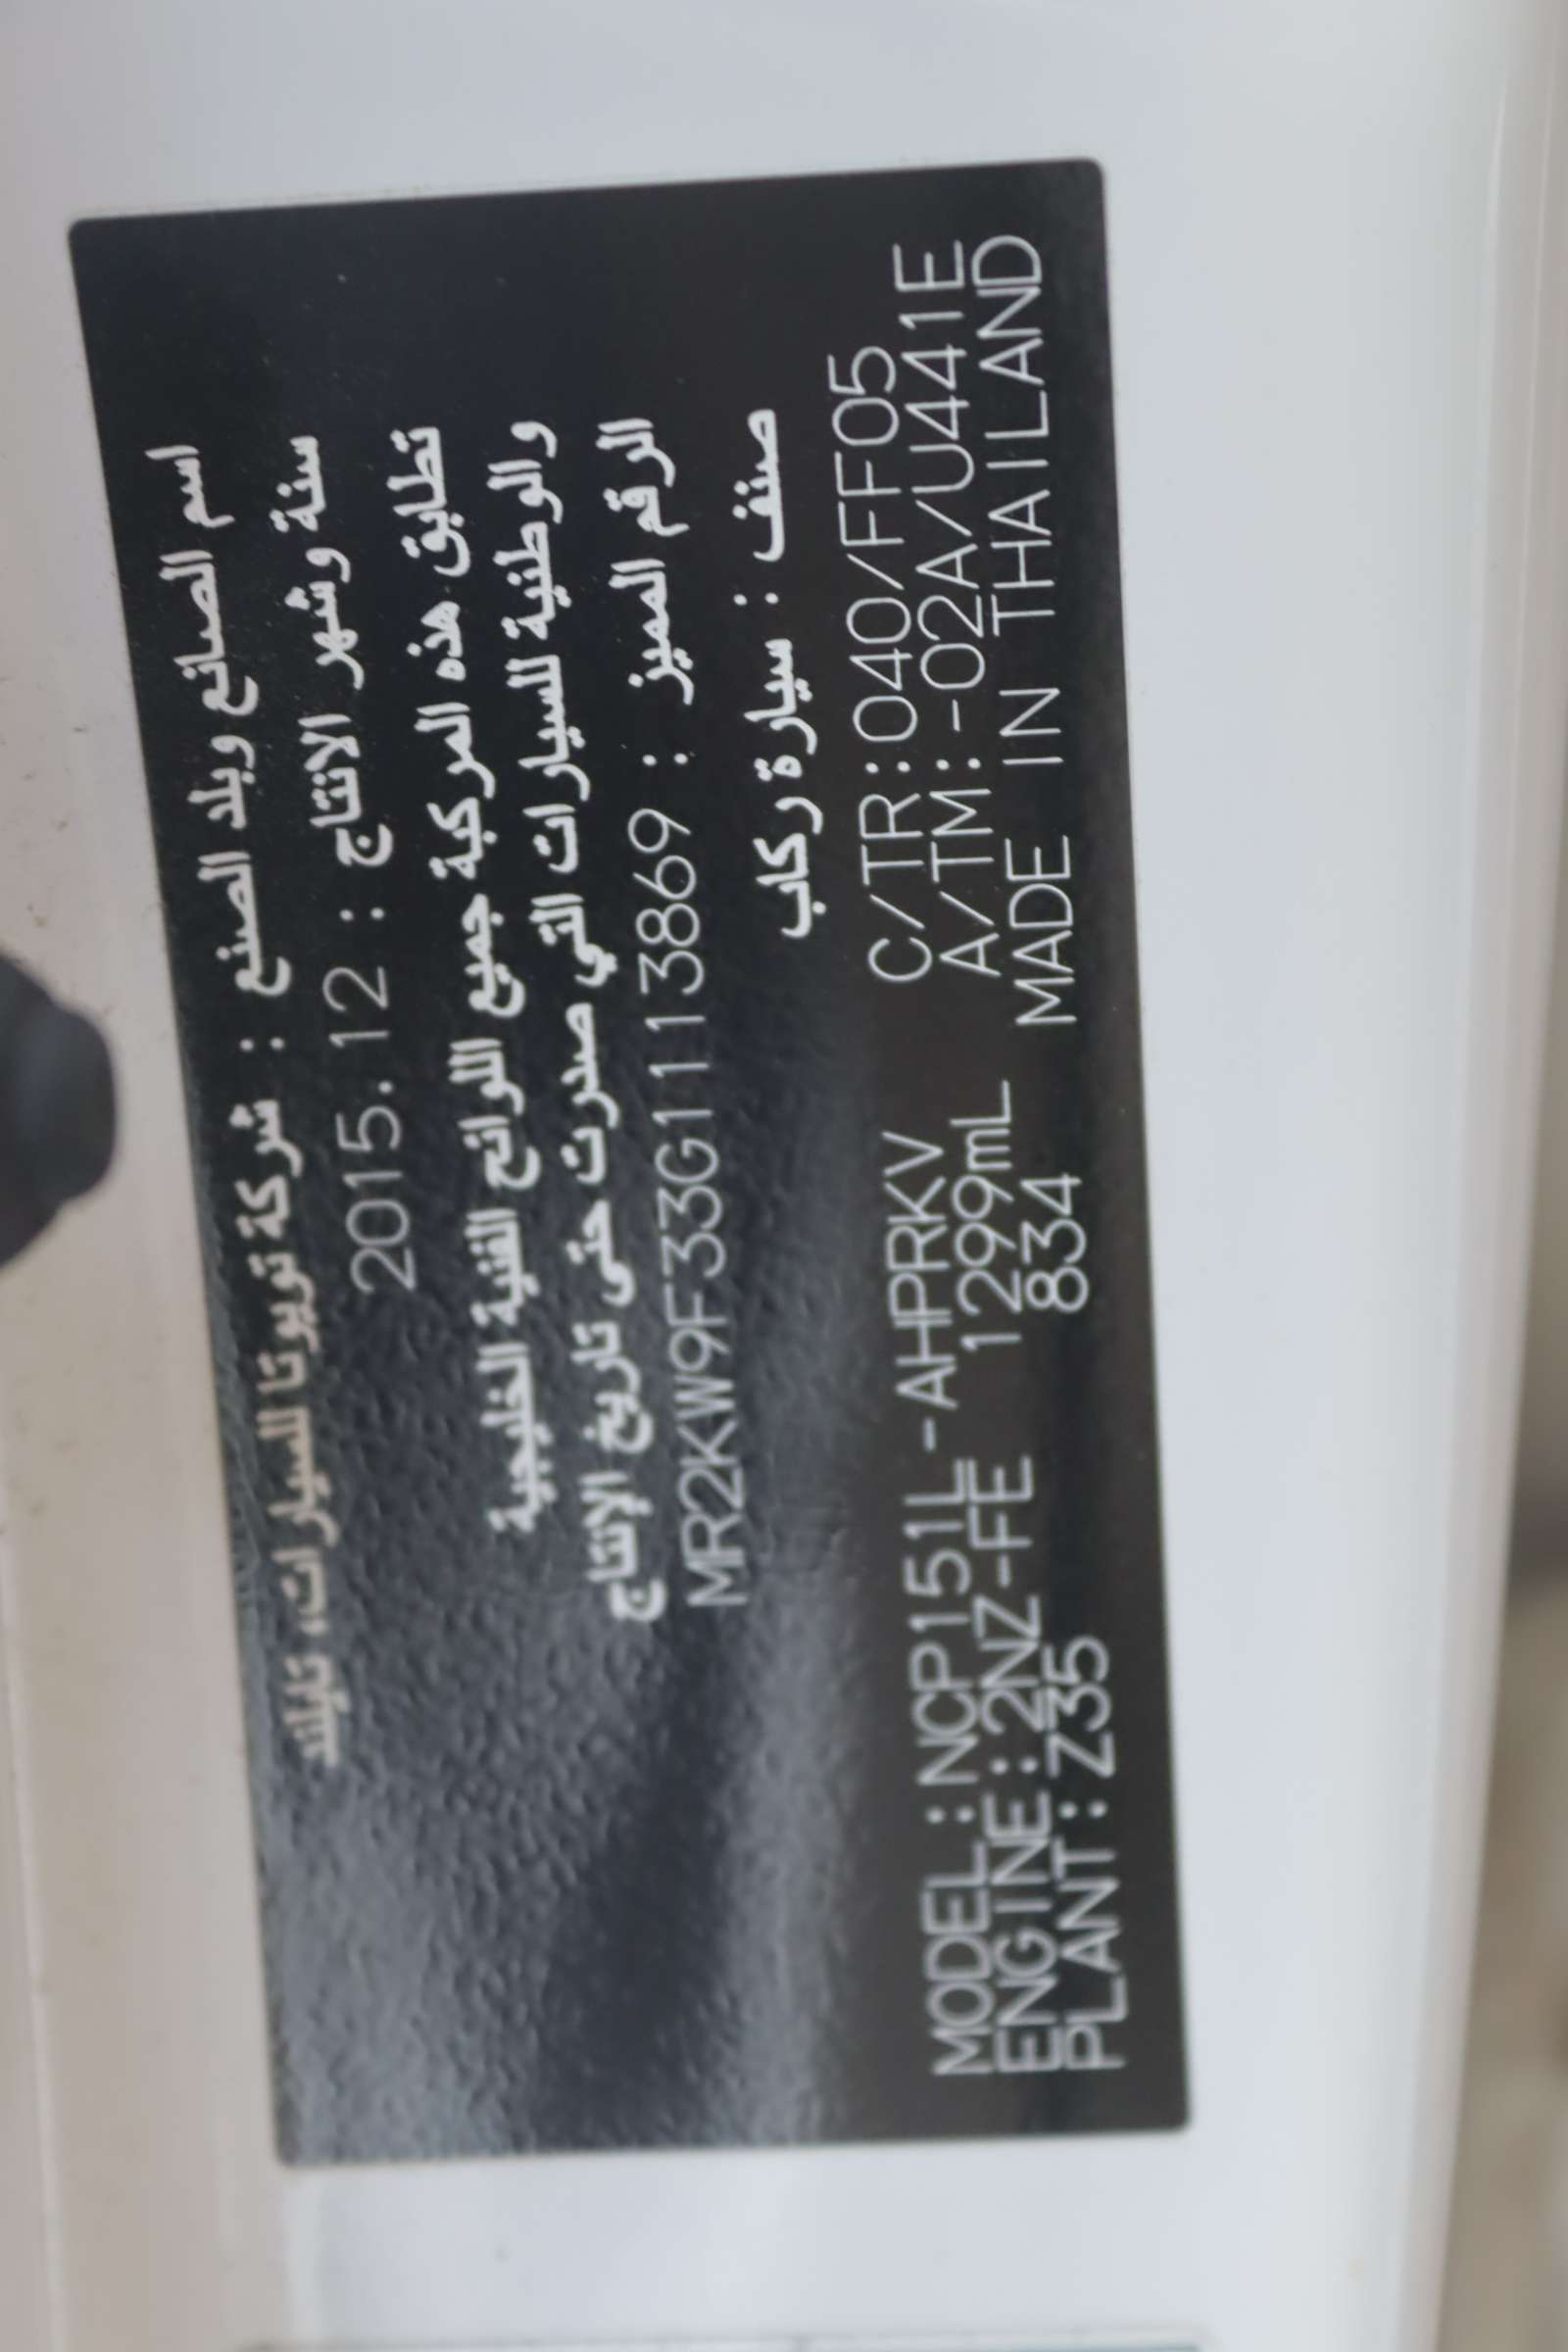 اسم الصانع وبلد الصنع : شركة تويوتا للسيارات، تايلاند
سنة وشهر الانتاج : 2015.12
تطابق هذه المركبة جميع اللوائح الفنية الخليجية
والوطنية للسيارات التي صدرت حتى تاريخ الإنتاج
الرقم المميز : MR2KW9F33G1113869
صنف : سيارة ركاب
MODEL :NCP151L-AHPRKV C/TR:040/FF05
ENGINE:2NZ-FE 1299mL A/TM:-02A/U441E
PLANT:Z35 834 MADE IN THAILAND